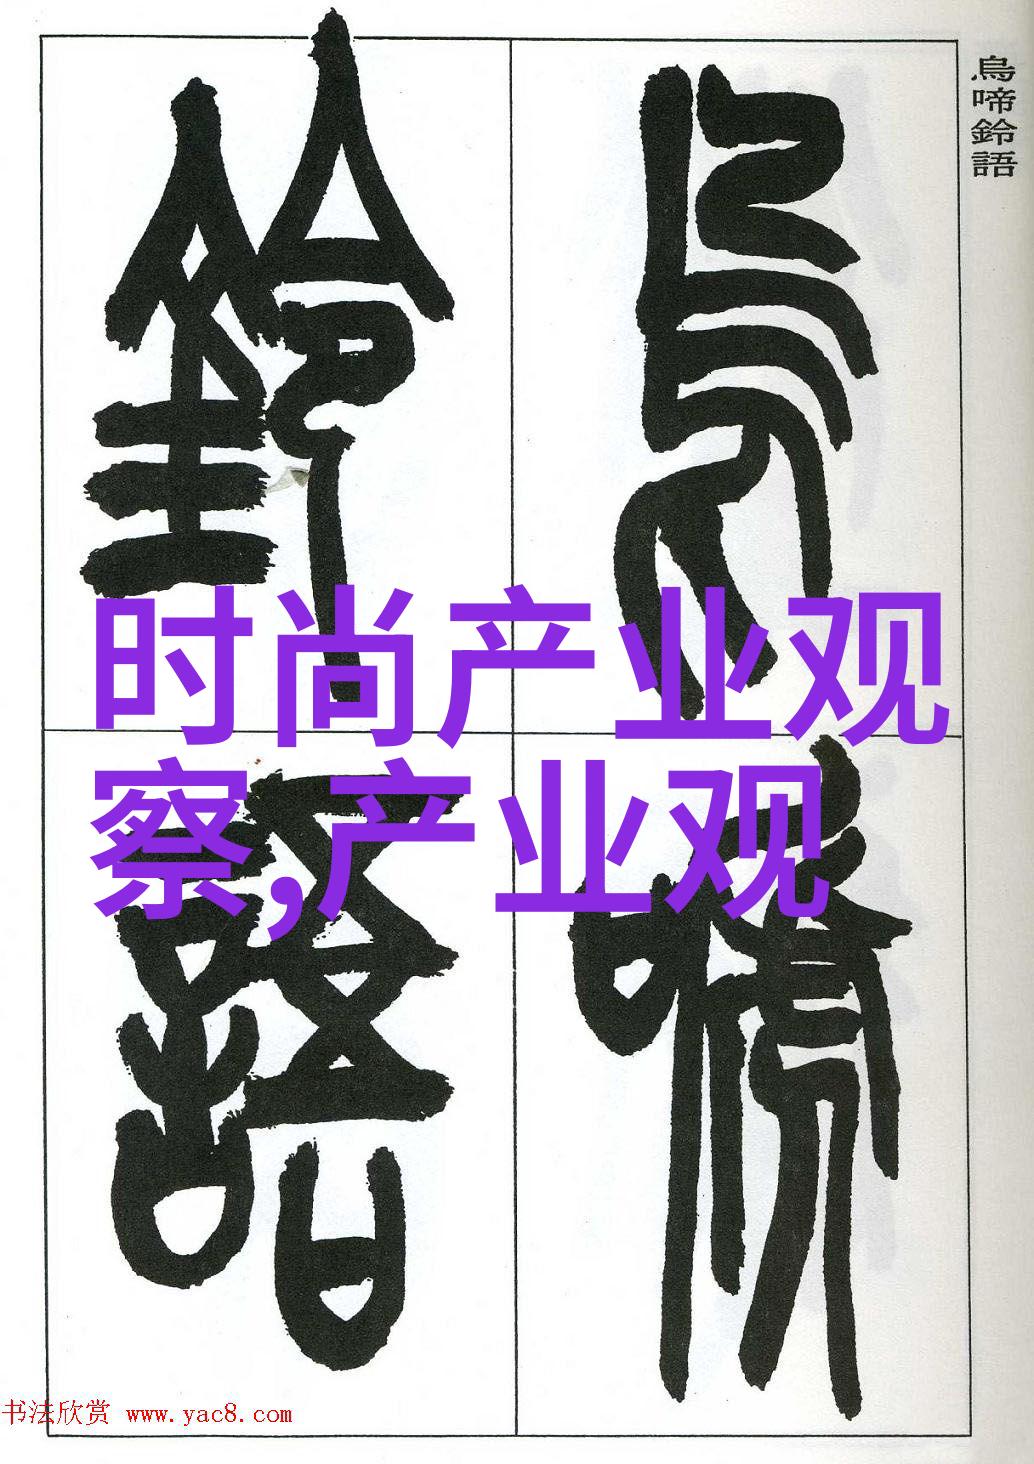 烏啼鈴語
烏啼
鈴語
时尚产业观
察,产业观
书法欣赏 www.yac8.com